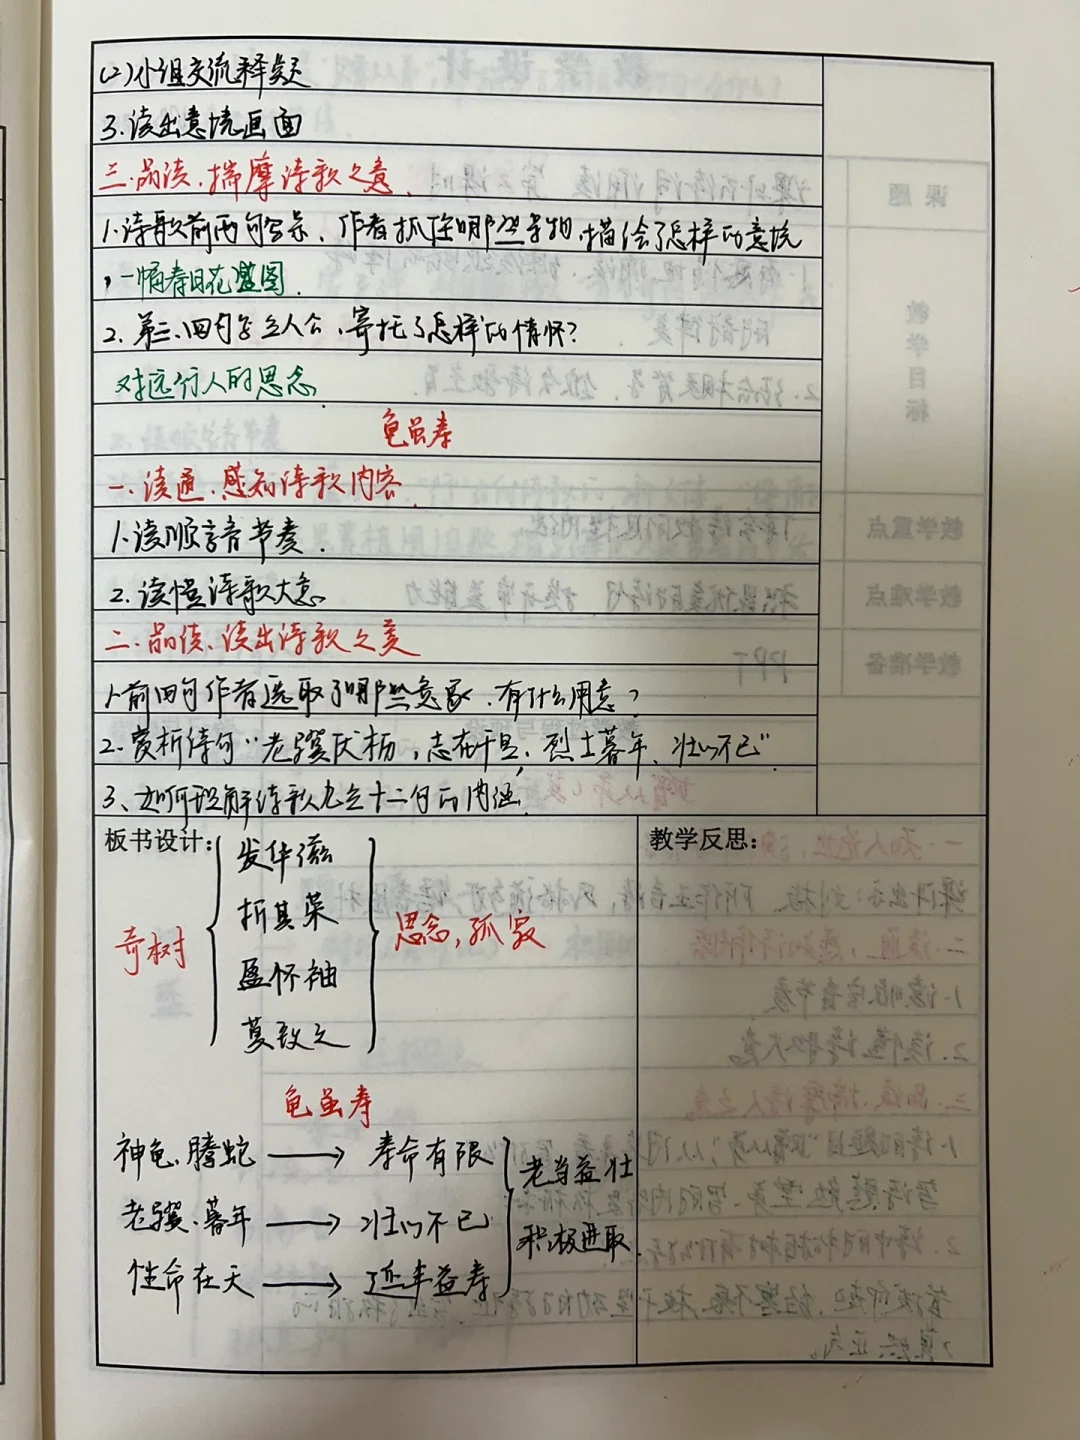 (2)小组交流释疑
3.读出意境画面
三.品读.揣摩诗歌之意.
1.诗歌前两句写景、作者抓住哪些景物,描绘了怎样的意境
,一幅春日花盛图.
2.第三、四句写主人公,寄托了怎样的情怀?
对远行人的思念.
龟虽寿
一.读通.感知诗歌内容.
1.读顺言音节奏.
2.读懂诗歌大意
二.品读.读出诗歌之美
1.前四句作者选取了哪些意象.有什么用意?
2.赏析诗句“老骥伏枥,志在千里.烈士暮年、壮心不已”
3、如何理解诗歌九至十二句的内涵.
板书设计:
奇树
发华滋
折其荣
盈怀袖
莫致之
思念,孤寂
龟虽寿
神龟、腾蛇 → 寿命有限
老骥、暮年 → 壮心不已
性命在天 → 延年益寿
老当益壮
积极进取
教学反思: